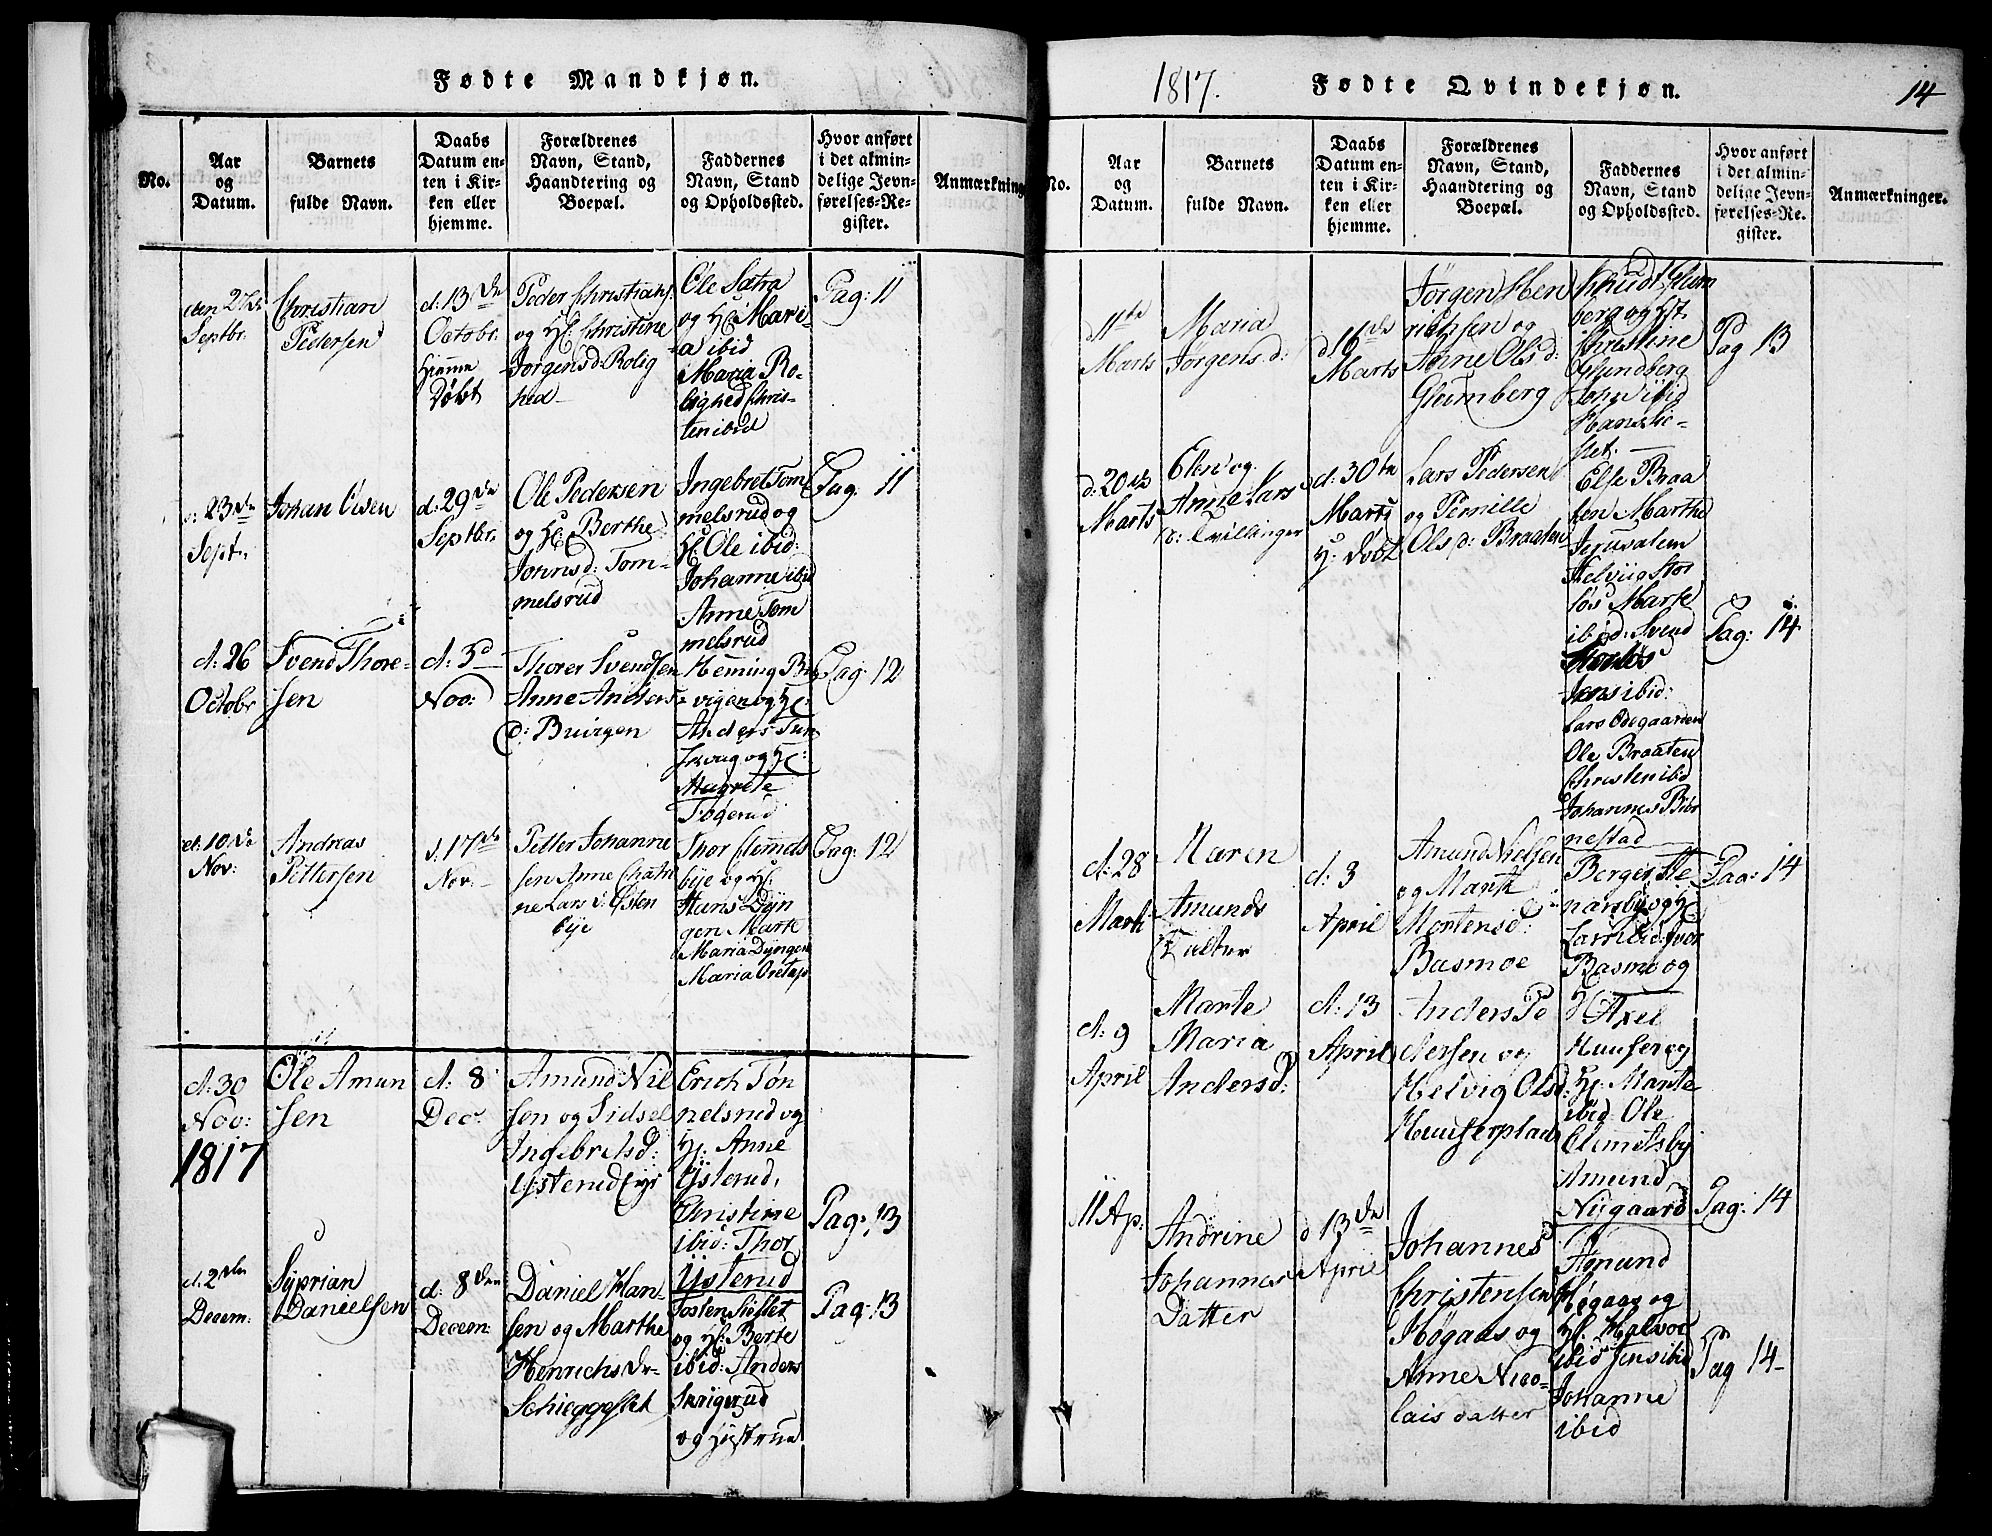 Fødte Mandkjøn.
No.
Aar
og
Datum.
Barnets
fulde Navn.
Daabs
Datum en-
ten i Kir-
ken eller
hjemme.
Forældrenes
Navn, Stand,
Haandtering og
Boepæl.
Faddernes
Navn, Stand
og Opholdssted.
Hvor anført
i det almin-
delige Jevn-
førelses-Re-
gister.
Anmærkning
den 27de
Septbr.
Christian
Pedersen
d: 13de
Octobr.
Hjemme
Døbt
Peder Christians.
og H: Christine
Jorgensd: Rolig
hed
Ole Sætra
og H: Mari-
a ibid
Maria Ro-
lighed Chris-
ten ibid
Pag: 11
d: 23de
Sept.
Johan Olsen
d: 29de
Septbr.
Ole Pedersen
og H: Berthe
Johnsd: Tom-
melsrud
Ingebret Tom
melsrud og
H: Ole ibid:
Johanne ibid
Anne Tom
melsrud
Pag: 11
d: 26
Octobr
Svend Thore-
sen
d: 3d
Nov:
Thorer Svendsen
Anne Anders
d: Buvigen
Heming Bu
vigen og H:
Anders
og H:
Magrete
Togerud
Pag: 12
d: 10de
Nov:
Andreas
Pettersen
d: 17de
Nov:
Petter Johanne
sen Anne Cathri
ne Lars d: Østen
bye
Thor Clemets
bye og H:
Hans Dyn
gen Marte
Maria Dyngen
Maria
Pag: 12
d: 30
Nov:
1817
Ole Amun
sen
d: 8
Dec.
Amund Nil
sen og Sidsel
Ingebretsd:
Ysterud Eyr
Erich Tøn
nelsrud og
H: Anne
Ysterud,
Christine
ibid: Thor
Ysterud
Pag: 13
d. 2den
Decem:
Syprian
Danielsen
d: 8den
Decem:
Daniel Han-
sen og Marthe
Henrichs dr
Schieggestet
Josten
og H: Berte
ibid: Anders
Skrigerud
og Hustrue
Pag: 13
1817.
Fødte Qvindekjøn.
14
No.
Aar
og
Datum.
Barnets
fulde Navn.
Daabs
Datum en-
ten i Kir-
ken eller
hjemme.
Forældrenes
Navn, Stand,
Haandtering og
Boepæl.
Faddernes
Navn, Stand
og Opholdssted.
Hvor anført
i det almin-
delige Jevn-
førelses-Re-
gister.
Anmærkninger.
d 11te
Marts
Maria
Jorgens d:
d 16de
Marts
Jorgen Hen
richsen og
Anne Ols d:
Glumberg
Knud Glum
berg og
Christine
Glundberg
John ibid
Hans
Pag 13
d: 20de
Marts
Elen og
Anne Lars
d: Tvillinger
d: 30te
Marts
H: Døbt
Lars Pedersen
og Pernille
Ols d: Braaten
Else Braa
ten Marthe
Jerusalem
Helvig Stor
løs Marte
ibid: Svend
Storløs
Jens ibid:
Lars Odegaarden
Ole Braaten
Christen ibid
Johannes
nestad
Pag: 14
d: 28
Marti
Maren
Amunds
Datter
d: 3
April
Amund Nielsen
og Marte
Mortensd:
Basmoe
Berger Ste
narsby og H:
Lars ibid: Iver
Basmo og
H:
Pag: 14
d: 9
April
Marte
Maria
Andersd:
d: 13
April
Anders Pe
dersen og
Helvig Olsd:
Huuserplads
Axel
Huuser og
H: Marte
ibid: Ole
Clemetsby
Amund
Nygaard
Pag: 14
11 Ap:
Andrine
Johannes
Datter
d 13de
April
Johannes
Christensen
Høgaas og
Anne Nico-
lais datter
Amund
Høgaas og
H: Halvor
ibid Jens ibid
Johanne
ibid
Pag 14